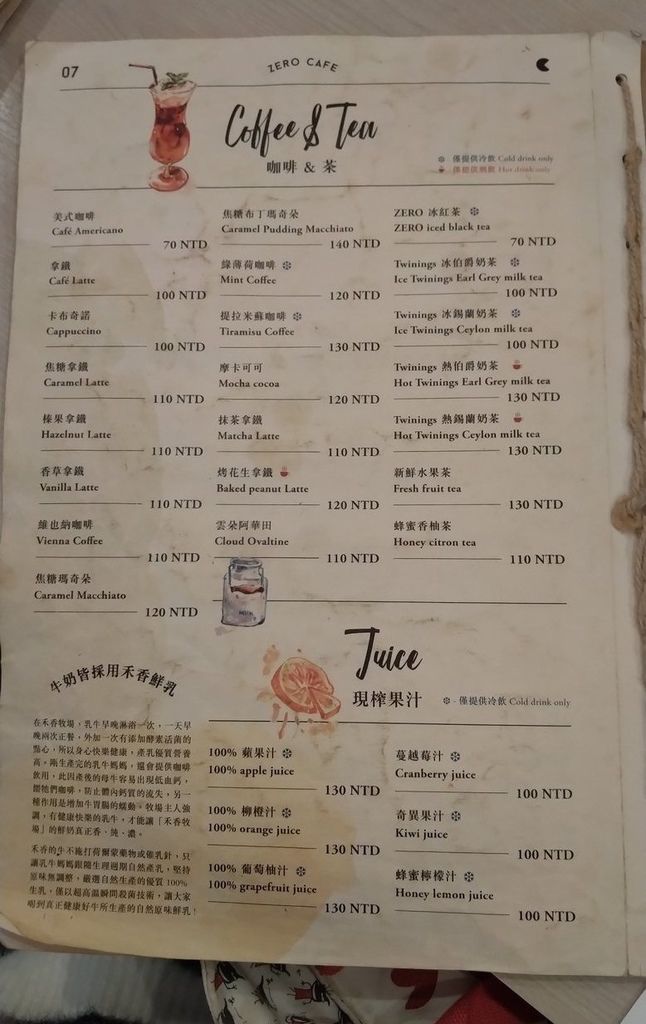 07
ZERO CAFE
Coffee & Tea
咖啡 & 茶
僅提供冷飲 Cold drink only
僅提供熱飲 Hot drink only
美式咖啡
Café Americano
70 NTD
拿鐵
Café Latte
100 NTD
卡布奇諾
Cappuccino
100 NTD
焦糖拿鐵
Caramel Latte
110 NTD
榛果拿鐵
Hazelnut Latte
110 NTD
香草拿鐵
Vanilla Latte
110 NTD
維也納咖啡
Vienna Coffee
110 NTD
焦糖瑪奇朵
Caramel Macchiato
120 NTD
焦糖布丁瑪奇朵
Caramel Pudding Macchiato
140 NTD
綠薄荷咖啡
Mint Coffee
120 NTD
提拉米蘇咖啡
Tiramisu Coffee
130 NTD
摩卡可可
Mocha cocoa
120 NTD
抹茶拿鐵
Matcha Latte
110 NTD
烤花生拿鐵
Baked peanut Latte
120 NTD
雲朵阿華田
Cloud Ovaltine
110 NTD
ZERO 冰紅茶
ZERO iced black tea
70 NTD
Twinings 冰伯爵奶茶
Ice Twinings Earl Grey milk tea
100 NTD
Twinings 冰錫蘭奶茶
Ice Twinings Ceylon milk tea
100 NTD
Twinings 熱伯爵奶茶
Hot Twinings Earl Grey milk tea
130 NTD
Twinings 熱錫蘭奶茶
Hot Twinings Ceylon milk tea
130 NTD
新鮮水果茶
Fresh fruit tea
130 NTD
蜂蜜香柚茶
Honey citron tea
110 NTD
牛奶皆採用禾香鮮乳
在禾香牧場，乳牛早晚淋浴一次，一天早
晚兩次正餐，外加一次有添加酵素活菌的
點心，所以身心快樂健康，產乳優質營養
高。剛生產完的乳牛媽媽，還會提供咖啡
飲用，此因產後的母牛容易出現低血鈣，
餵牠們咖啡，防止體內鈣質的流失，另一
種作用是增加牛胃腸的蠕動。牧場主人強
調，有健康快樂的乳牛，才能讓「禾香牧
場」的鮮奶真正香、純、濃。
禾香的牛不施打荷爾蒙藥物或催乳針，只
讓乳牛媽媽跟隨生理週期自然產乳，堅持
原味無調整，嚴選自然生產的優質 100%
生乳，僅以超高溫瞬間殺菌技術，讓大家
喝到真正健康好牛所生產的自然原味鮮乳！
Juice
現榨果汁
- 僅提供冷飲 Cold drink only
100% 蘋果汁
100% apple juice
130 NTD
100% 柳橙汁
100% orange juice
130 NTD
100% 葡萄柚汁
100% grapefruit juice
130 NTD
蔓越莓汁
Cranberry juice
100 NTD
奇異果汁
Kiwi juice
100 NTD
蜂蜜檸檬汁
Honey lemon juice
100 NTD